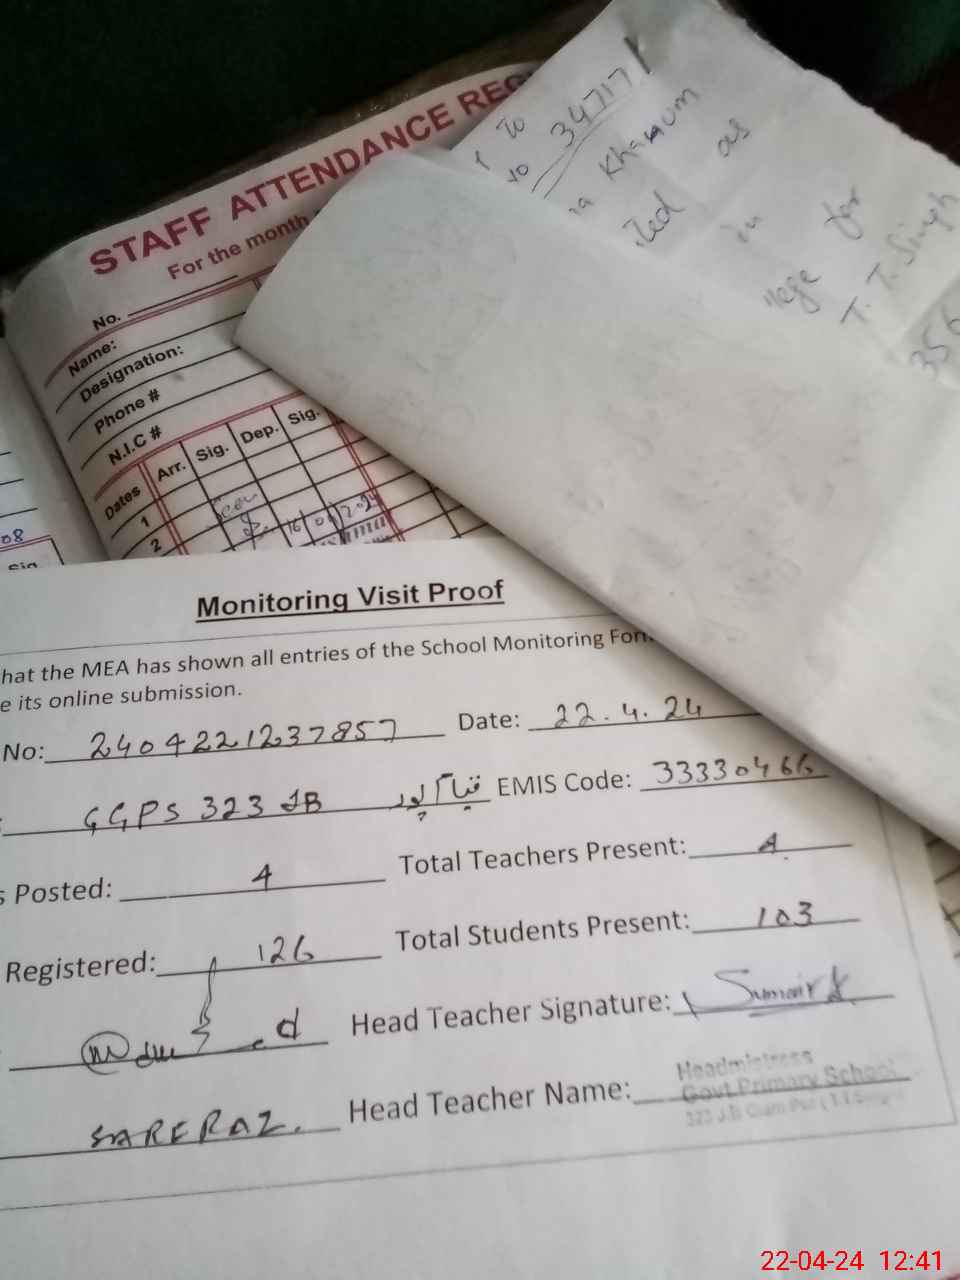 STAFF ATTENDANCE REG
For the month
No.
Name:
Designation:
Phone #
N.I.C #
Dates Arr. Sig. Dep. Sig.
1
2 16/04/2024
08
Sig
To
to 34717
Khanum
as
in
for
T.T. Singh
356
Monitoring Visit Proof
hat the MEA has shown all entries of the School Monitoring For
e its online submission.
No: 2404221237857 Date: 22.4.24
GGPS 323 JB EMIS Code: 33330466
s Posted: 4 Total Teachers Present: 4
Registered: 126 Total Students Present: 103
Head Teacher Signature: Sumair
SARFRAZ. Head Teacher Name: Headmistress
Govt. Primary School
323 J.B
22-04-24 12:41